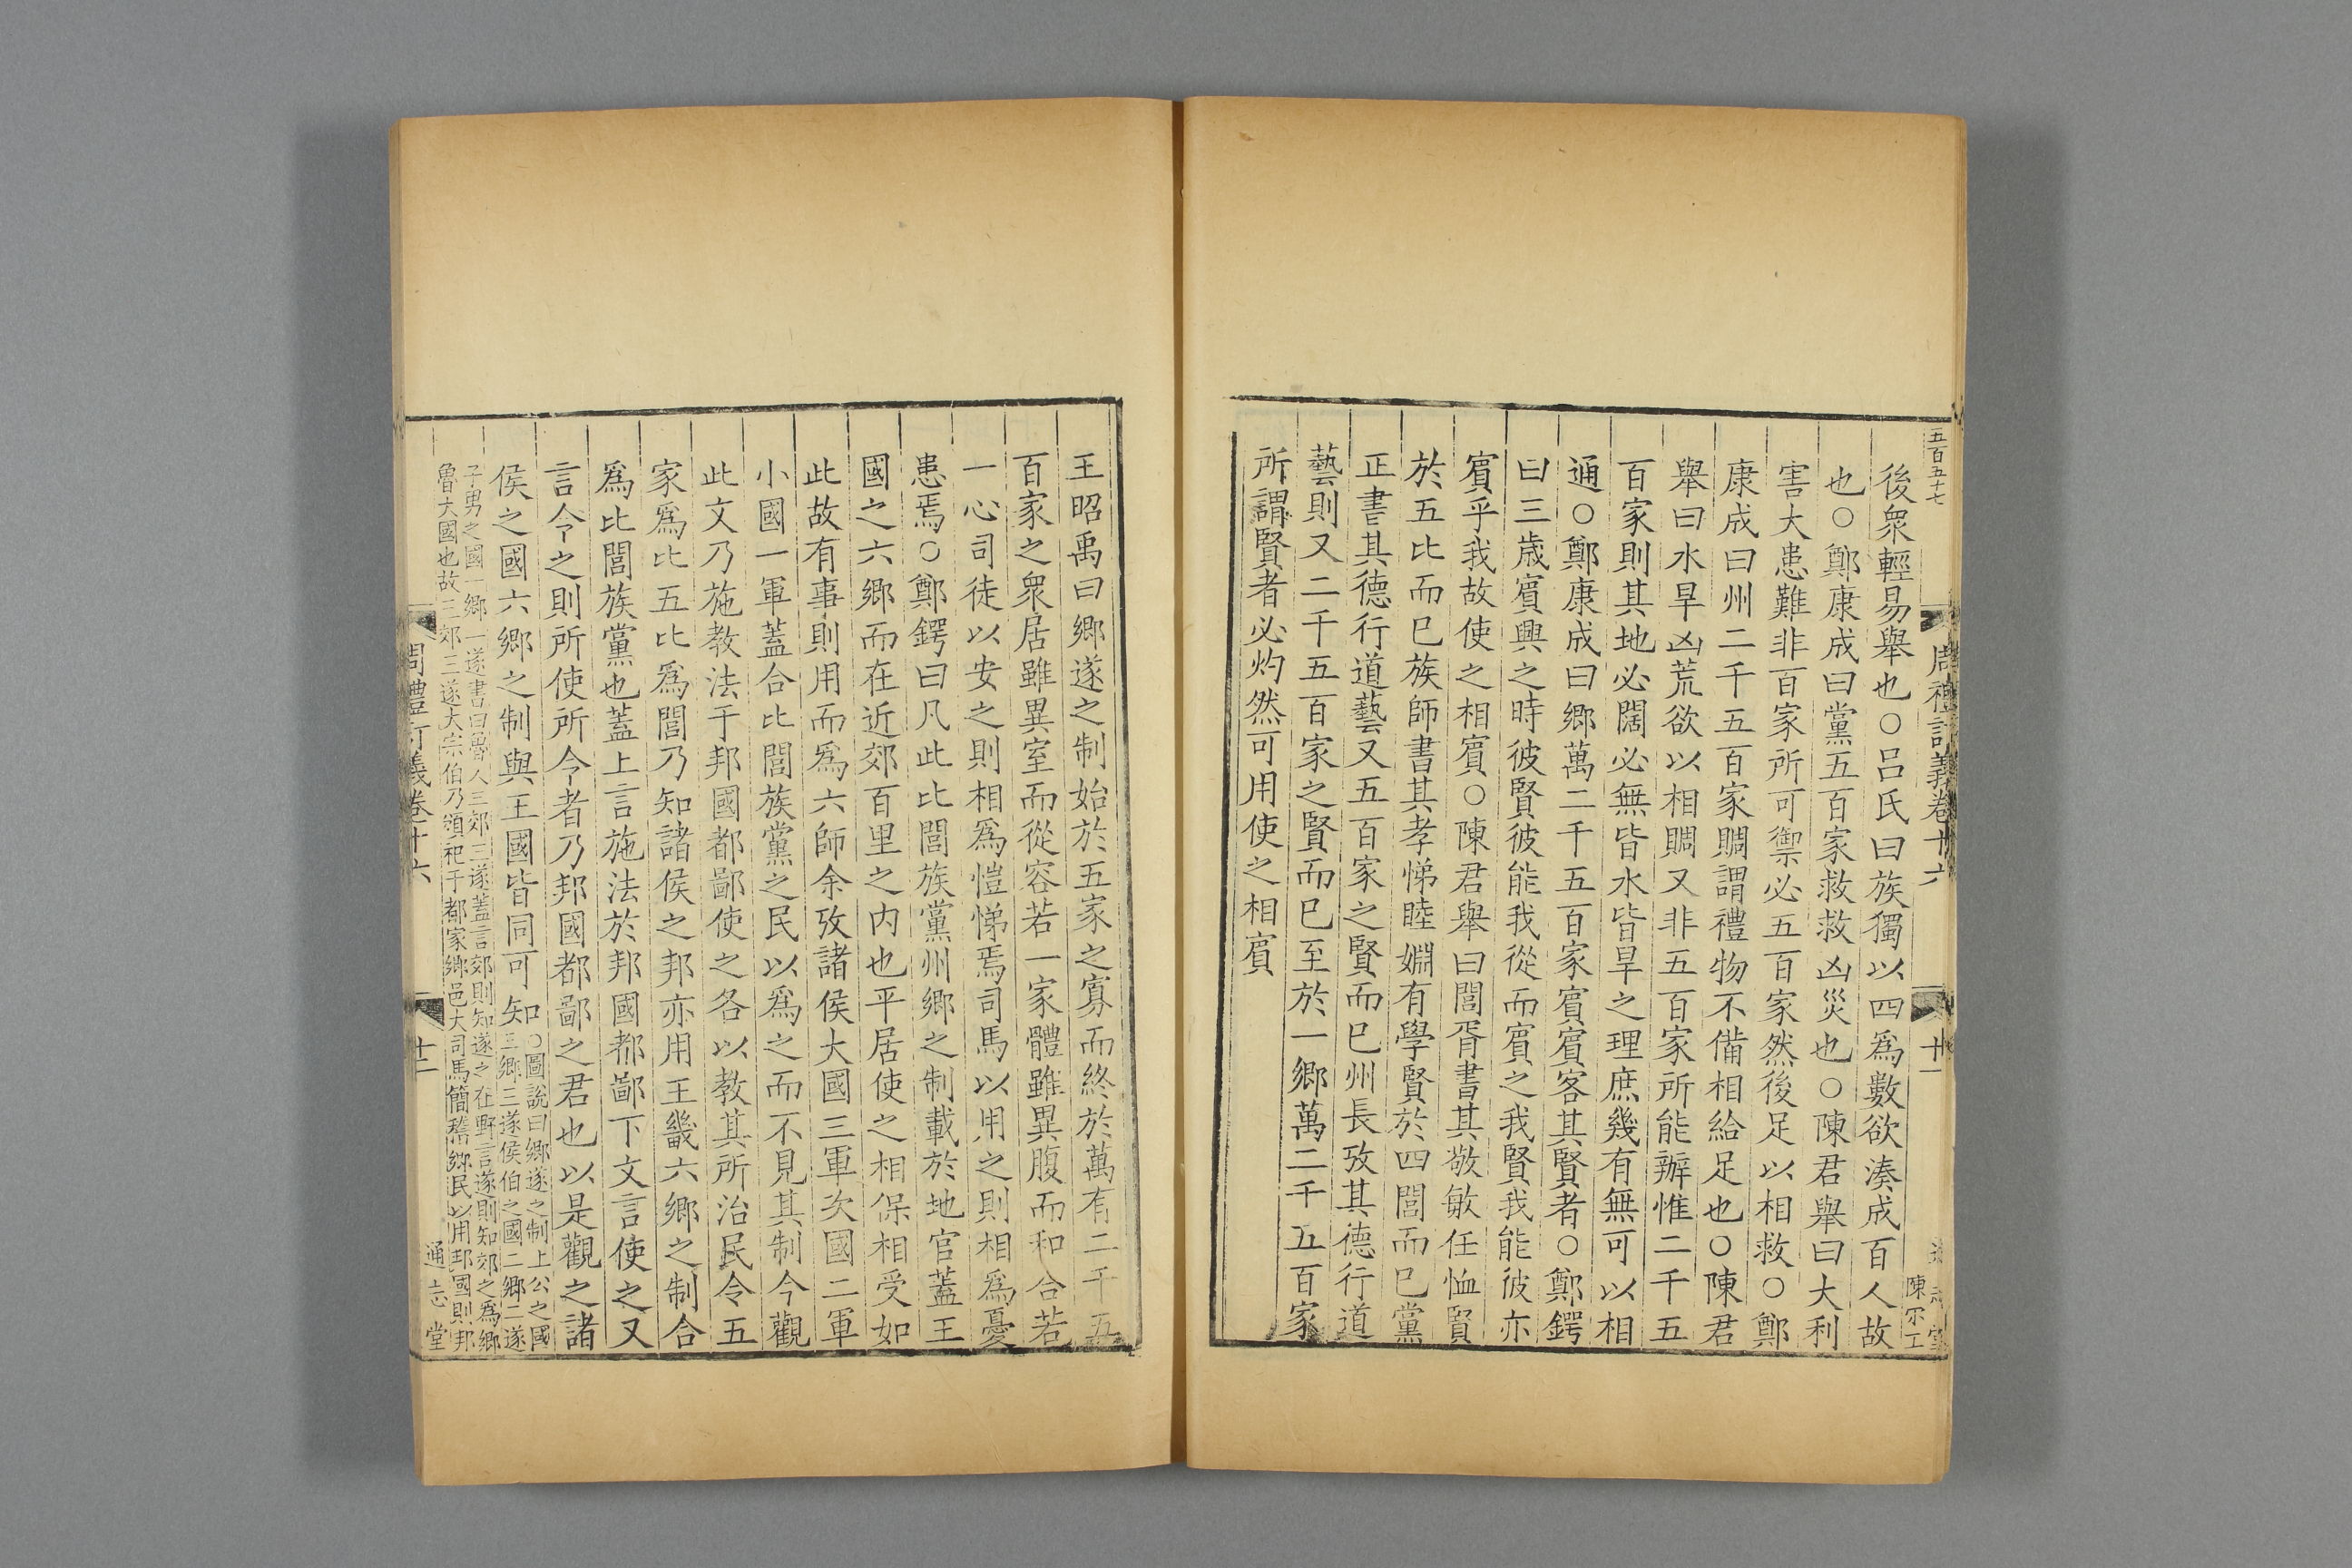 五百五十七
周禮訂義卷十六
十一
陳㝎工
後衆輕易舉也○呂氏曰族獨以四爲數欲湊成百人故
也○鄭康成曰黨五百家救救凶災也○陳君舉曰大利
害大患難非百家所可禦必五百家然後足以相救○鄭
康成曰州二千五百家賙謂禮物不備相給足也○陳君
舉曰水旱凶荒欲以相賙又非五百家所能辦惟二千五
百家則其地必闊必無皆水皆旱之理庶幾有無可以相
通○鄭康成曰鄉萬二千五百家賔賔客其賢者○鄭鍔
曰三歲賔興之時彼賢彼能我從而賔之我賢我能彼亦
賔乎我故使之相賔○陳君舉曰閭胥書其敬敏任恤賢
於五比而已族師書其孝悌睦婣有學賢於四閭而已黨
正書其德行道藝又五百家之賢而已州長攷其德行道
藝則又二千五百家之賢而已至於一鄉萬二千五百家
所謂賢者必灼然可用使之相賔
王昭禹曰鄉遂之制始於五家之寡而終於萬有二千五
百家之衆居雖異室而從容若一家體雖異腹而和合若
一心司徒以安之則相爲愷悌焉司馬以用之則相爲憂
患焉○鄭鍔曰凡此比閭族黨州鄉之制載於地官蓋王
國之六鄉而在近郊百里之内也平居使之相保相受如
此故有事則用而爲六師余攷諸侯大國三軍次國二軍
小國一軍蓋合比閭族黨之民以爲之而不見其制今觀
此文乃施教法于邦國都鄙使之各以教其所治民令五
家爲比五比爲閭乃知諸侯之邦亦用王畿六鄉之制合
爲比閭族黨也蓋上言施法於邦國都鄙下文言使之又
言令之則所使所令者乃邦國都鄙之君也以是觀之諸
侯之國六鄉之制與王國皆同可知○圖說曰鄉遂之制上公之國
三鄉三遂侯伯之國二鄉二遂
子男之國一鄉一遂書曰魯人三郊三遂蓋言郊則知遂之在野言遂則知郊之爲鄉
魯大國也故三郊三遂大宗伯乃頒祀于都家鄉邑大司馬簡稽鄉民以用邦國則邦
周禮訂義卷十六
十二
通志堂